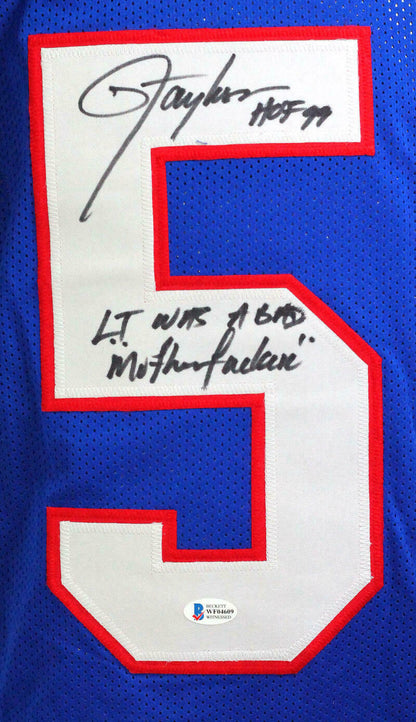 LTaylor
HOF 99
L.T WAS A BAD
"Motherfucker"
5
BECKETT
B
WF04609
WITNESSED